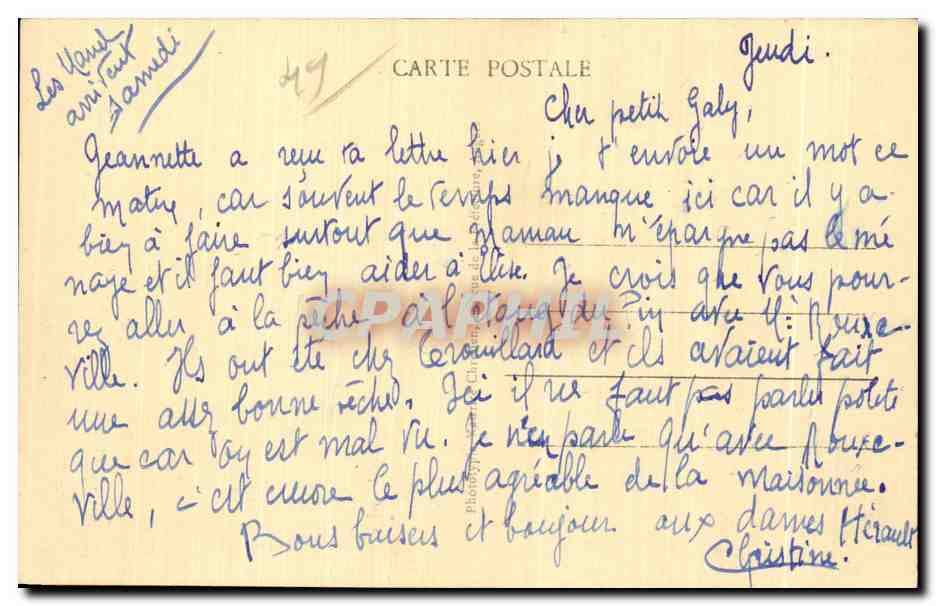 Les
arrivent
samedi
49
CARTE POSTALE
Jeudi.
Cher petit Gaby,
Jeannette a reçu ta lettre hier je t'envoie un mot ce
matin, car souvent le temps manque ici car il y a
bien à faire surtout que Maman m'épargne pas le mé
nage et il faut bien aider à Élise. Je crois que vous pour-
rez aller à la pêche à l'étang du Pin avec Mr Rouxe-
ville. Ils ont été chez Trouillard et ils avaient fait
une assez bonne pêche. Ici il ne faut pas parler
que car on est mal vu. Je n'en parle qu'avec Rouxe-
ville, c'est encore le plus agréable de la maisonnée.
Bons baisers et bonjour aux dames Hérault
Christine.
CPAPHIL
Phototypie